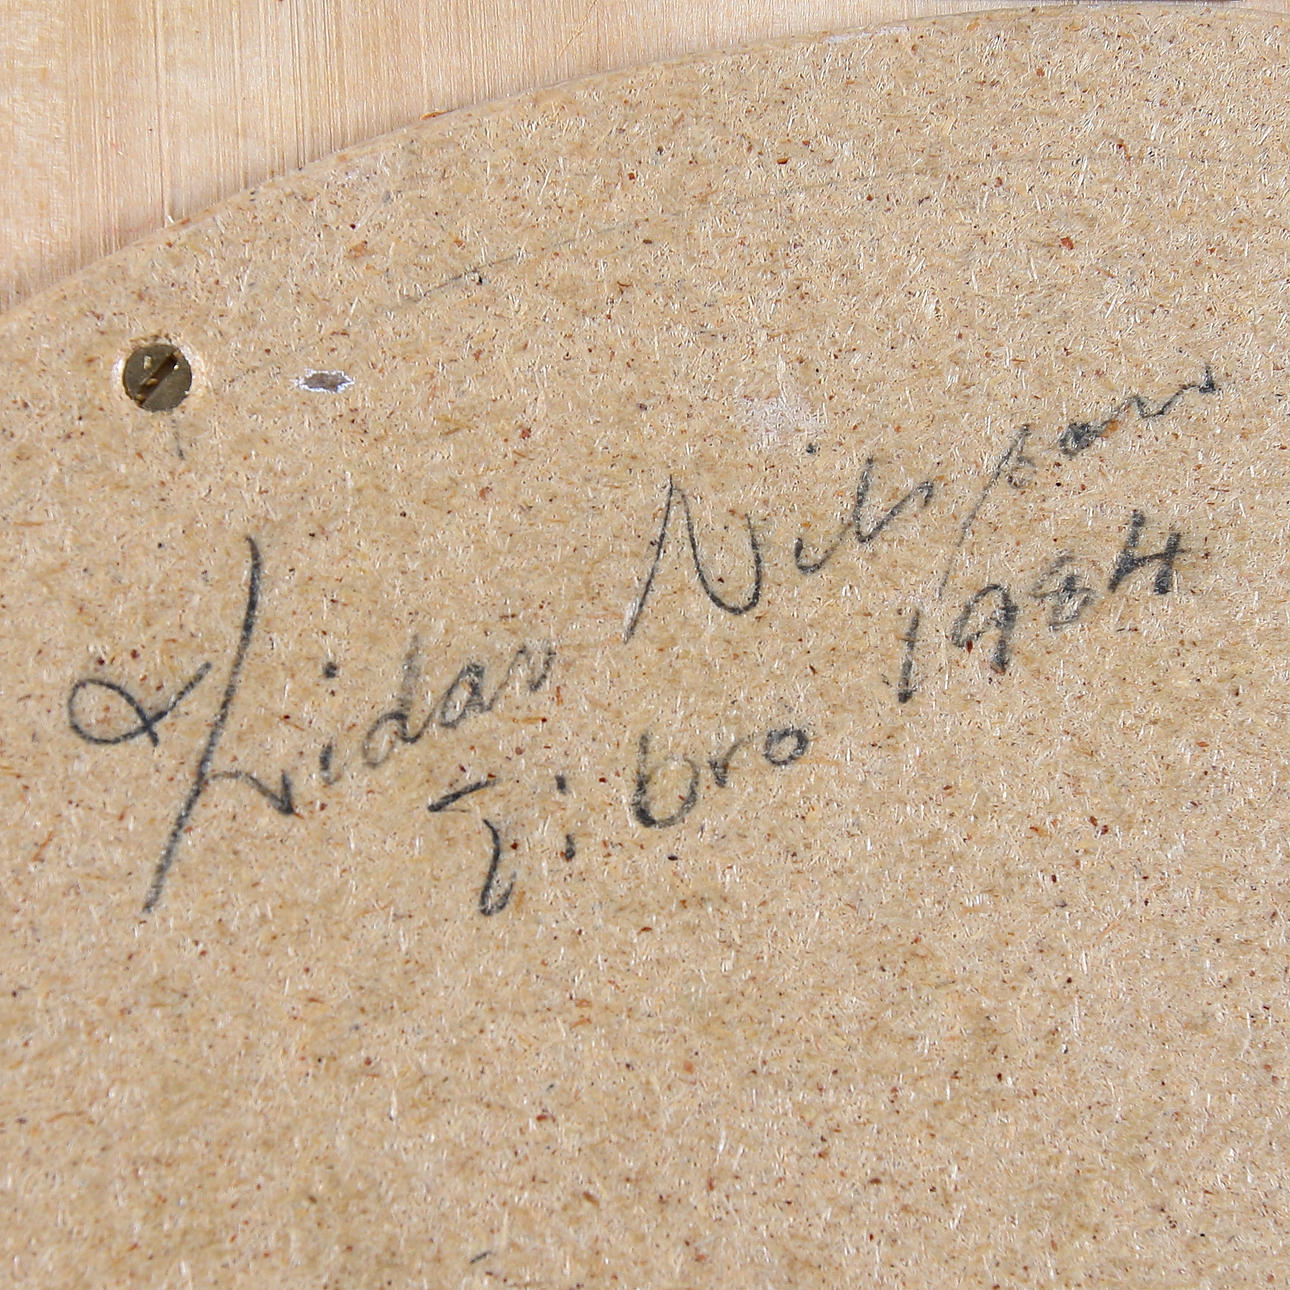 Vidar Nilsson
Tibro 1984